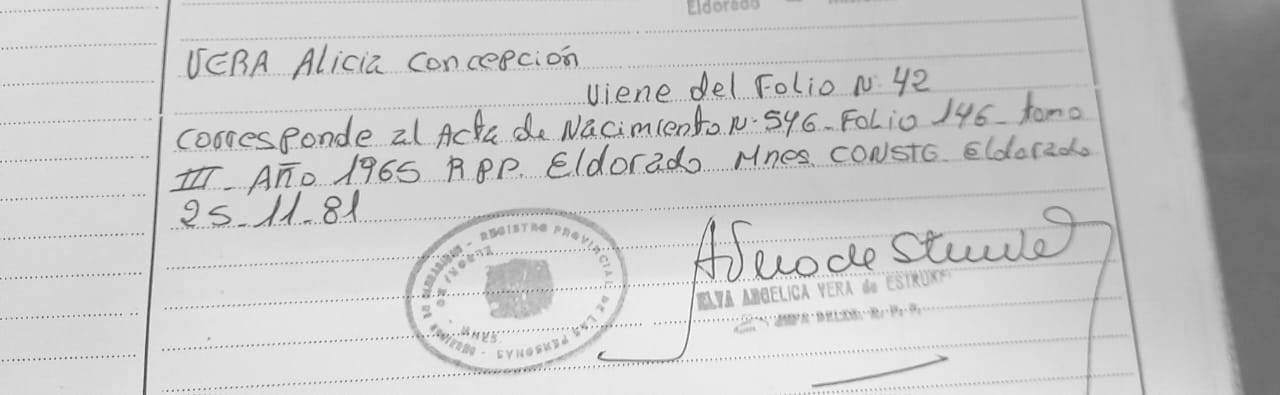 Eldorado
VERA Alicia Concepción
Viene del Folio N. 42
corresponde al Acta de Nacimiento N. 546 - Folio 146 - tomo
III - Año 1965 RPP. Eldorado Mnes. CONSTE. Eldorado
25-11-81
REGISTRO PROVINCIAL DE LAS PERSONAS
ELVA ANGELICA VERA de ESTRUK